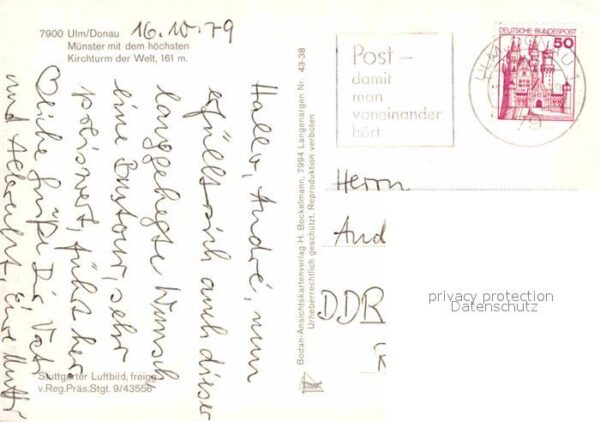 7900 Ulm/Donau
Münster mit dem höchsten
Kirchturm der Welt, 161 m.
16.10.79
Hallo, André, nun
erfüllt sich auch dieser
langgehegte Wunsch
eine Bustour, sehr
preiswert, führt her.
Grüße Dir, Vati
und Mutti
Stuttgarter Luftbild, freigg.
v. Reg. Präs. Stgt. 9/43556
Bodan-Ansichtskartenverlag H. Bockelmann, 7994 Langenargen Nr. 43-38
Urheberrechtlich geschützt. Reproduktion verboten
Post –
damit
man
voneinander
hört
ULM, DONAU 1
79
DEUTSCHE BUNDESPOST
50
Herrn
And
DDR
privacy protection
Datenschutz